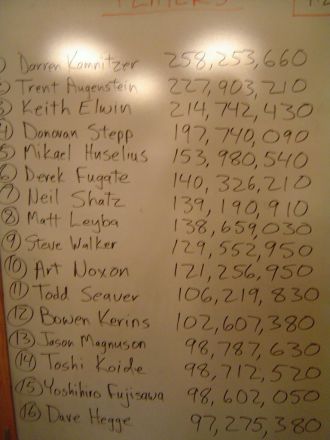 PLAYERS
1) Darren Kamnitzer 258,253,660
2) Trent Augenstein 227,903,210
3) Keith Elwin 214,742,430
4) Donovan Stepp 197,740,090
5) Mikael Huselius 153,980,540
6) Derek Fugate 140,326,210
7) Neil Shatz 139,190,910
8) Matt Leyba 138,659,030
9) Steve Walker 129,552,950
10) Art Noxon 121,256,950
11) Todd Seaver 106,219,830
12) Bowen Kerins 102,607,380
13) Jason Magnuson 98,787,630
14) Toshi Koide 98,712,520
15) Yoshihiro Fujisawa 98,602,050
16) Dave Hegge 97,275,380